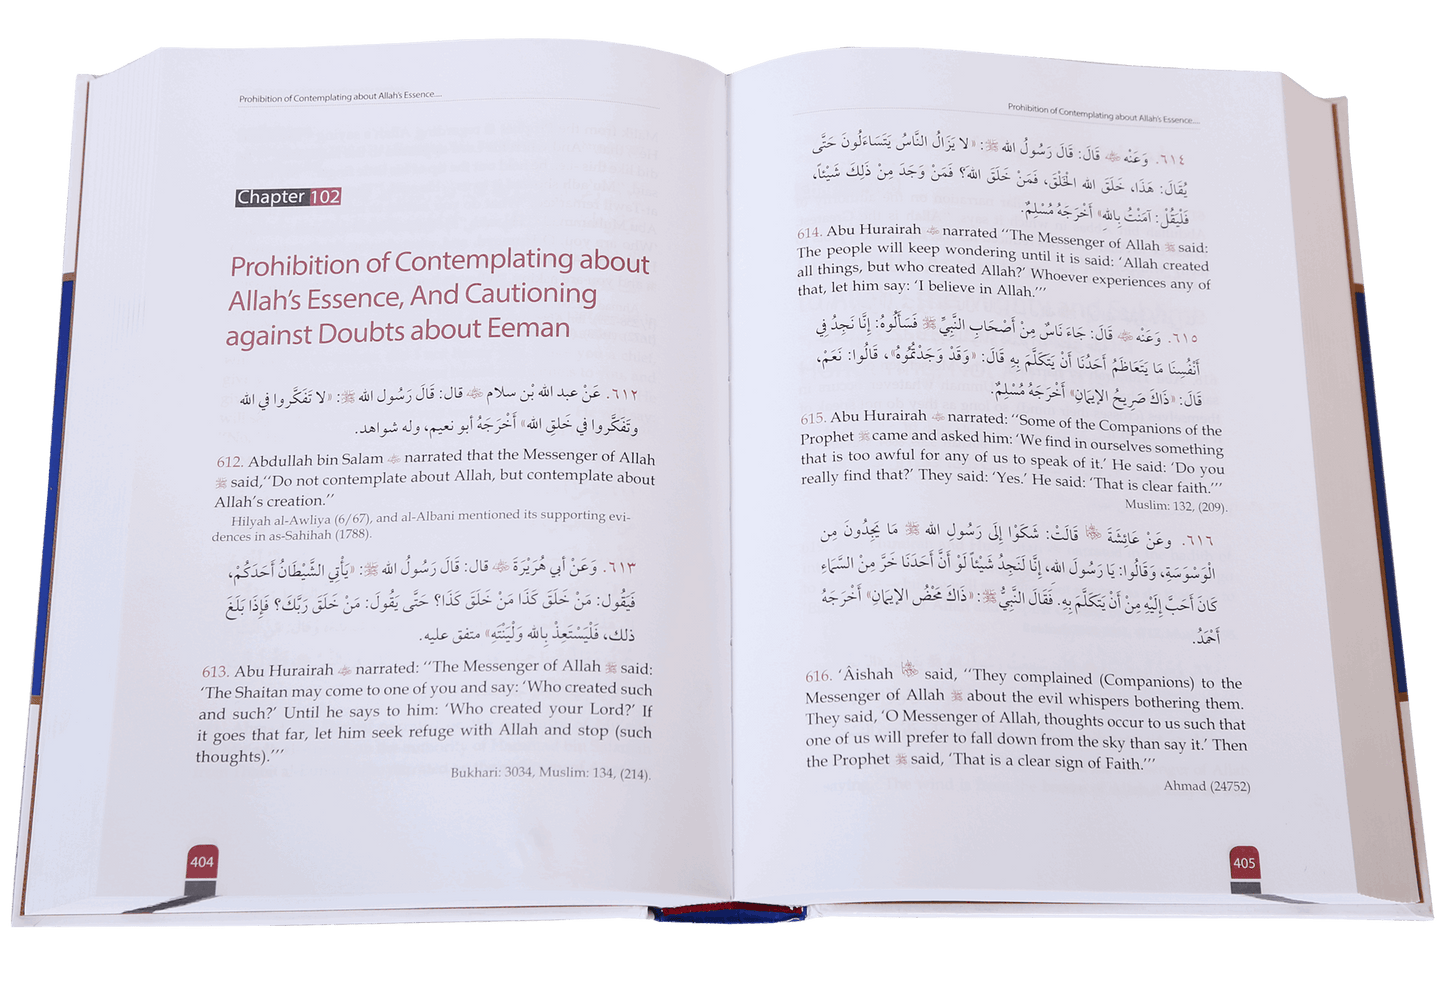 Prohibition of Contemplating about Allah's Essence....
Chapter 102
Prohibition of Contemplating about
Allah's Essence, And Cautioning
against Doubts about Eeman
٦١٢. عَنْ عبد الله بْن سلام ﷺ قال: قَالَ رَسُول الله ﷺ: «لا تَفَكَّروا في الله
وتَفَكَّروا في خَلقِ الله» أَخْرَجَهُ أبو نعيم، وله شواهد.
612. Abdullah bin Salam narrated that the Messenger of Allah
ﷺ said,''Do not contemplate about Allah, but contemplate about
Allah's creation.''
Hilyah al-Awliya (6/67), and al-Albani mentioned its supporting evi-
dences in as-Sahihah (1788).
٦١٣. وَعَنْ أبي هُرَيْرَةَ قال: قَالَ رَسُولُ الله ﷺ: «يَأْتِي الشَّيْطَانُ أَحَدَكُمْ،
فَيَقُول: مَنْ خَلَقَ كَذَا مَنْ خَلَقَ كَذَا؟ حَتَّى يَقُولَ: مَنْ خَلَقَ رَبَّكَ؟ فَإِذَا بَلَغَ
ذلك، فَلْيَسْتَعِذْ بِالله وَلْيَنْتَهِ» متفق عليه.
613. Abu Hurairah narrated: ''The Messenger of Allah ﷺ said:
'The Shaitan may come to one of you and say: 'Who created such
and such?' Until he says to him: 'Who created your Lord?' If
it goes that far, let him seek refuge with Allah and stop (such
thoughts).'''
Bukhari: 3034, Muslim: 134, (214).
404
Prohibition of Contemplating about Allah's Essence....
٦١٤. وَعَنْه قَالَ: قَالَ رَسُولُ الله ﷺ: «لا يَزَالُ النَّاسُ يَتَسَاءَلُونَ حَتَّى
يُقَالَ: هَذَا، خَلَقَ الله الخَلْقَ، فَمَنْ خَلَقَ اللهَ؟ فَمَنْ وَجَدَ مِنْ ذَلِكَ شَيْئاً،
فَلْيَقُلْ: آمَنْتُ بِاللهِ» أَخْرَجَهُ مُسْلِمٌ.
614. Abu Hurairah narrated ''The Messenger of Allah ﷺ said:
The people will keep wondering until it is said: 'Allah created
all things, but who created Allah?' Whoever experiences any of
that, let him say: 'I believe in Allah.'''
٦١٥. وَعَنْه قَالَ: جَاءَ نَاسٌ مِنْ أَصْحَابِ النَّبِيِّ ﷺ فَسَأَلُوهُ: إِنَّا نَجِدُ فِي
أَنْفُسِنَا مَا يَتَعَاظَمُ أَحَدُنَا أَنْ يَتَكَلَّمَ بِهِ قَالَ: «وَقَدْ وَجَدْتُمُوهُ»، قَالُوا: نَعَمْ،
قَالَ: «ذَاكَ صَرِيحُ الإيمَانِ» أَخْرَجَهُ مُسْلِمٌ.
615. Abu Hurairah narrated: ''Some of the Companions of the
Prophet ﷺ came and asked him: 'We find in ourselves something
that is too awful for any of us to speak of it.' He said: 'Do you
really find that?' They said: 'Yes.' He said: 'That is clear faith.'''
Muslim: 132, (209).
٦١٦. وعَنْ عَائِشَةَ قَالَتْ: شَكَوْا إِلَى رَسُولِ الله ﷺ مَا يَجِدُونَ مِن
الْوَسْوَسَةِ، وَقَالُوا: يَا رَسُولَ الله، إِنَّا لَنَجِدُ شَيْئاً لَوْ أَنَّ أَحَدَنَا خَرَّ مِنْ السَّمَاءِ
كَانَ أَحَبَّ إِلَيْهِ مِنْ أَنْ يَتَكَلَّمَ بِهِ. فَقَالَ النَّبِيُّ ﷺ: «ذَاكَ مَحْضُ الإيمَانِ» أَخْرَجَهُ
أَحْمَدُ.
616. 'Âishah said, ''They complained (Companions) to the
Messenger of Allah ﷺ about the evil whispers bothering them.
They said, 'O Messenger of Allah, thoughts occur to us such that
one of us will prefer to fall down from the sky than say it.' Then
the Prophet ﷺ said, 'That is a clear sign of Faith.'''
Ahmad (24752)
405